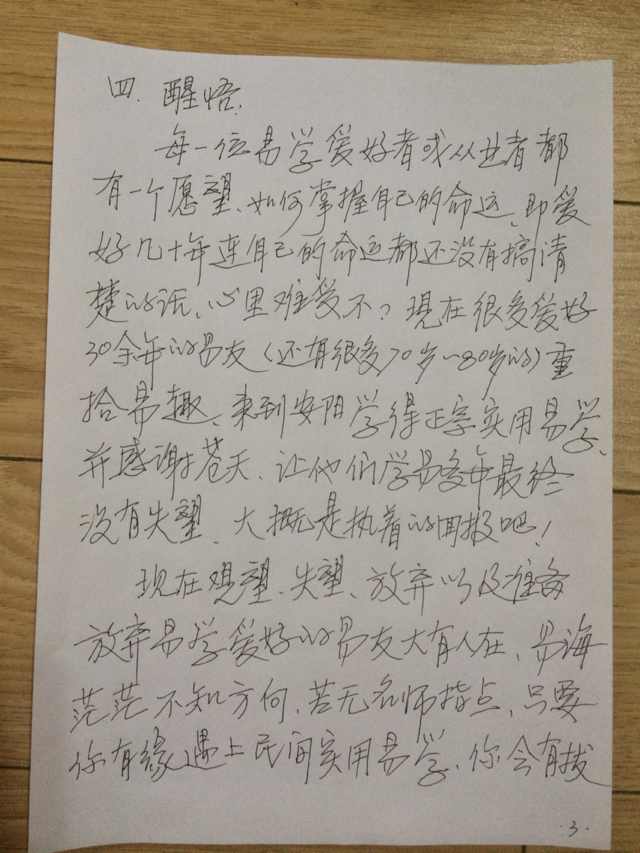 四.醒悟.
每一位易学爱好者或从业者都
有一个愿望、如何掌握自己的命运、即爱
好几十年连自己的命运都还没有搞清
楚的话、心里难受不？现在很多爱好
30余年的易友（还有很多70岁~80岁的）重
拾易趣、来到安阳学得正宗实用易学、
并感谢苍天、让他们学易多年最终
没有失望、大概是执着的回报吧！
现在观望、失望、放弃以及准备
放弃易学爱好的易友大有人在、易海
茫茫不知方向、若无名师指点、只要
你有缘遇上民间实用易学、你会有拨
·3·